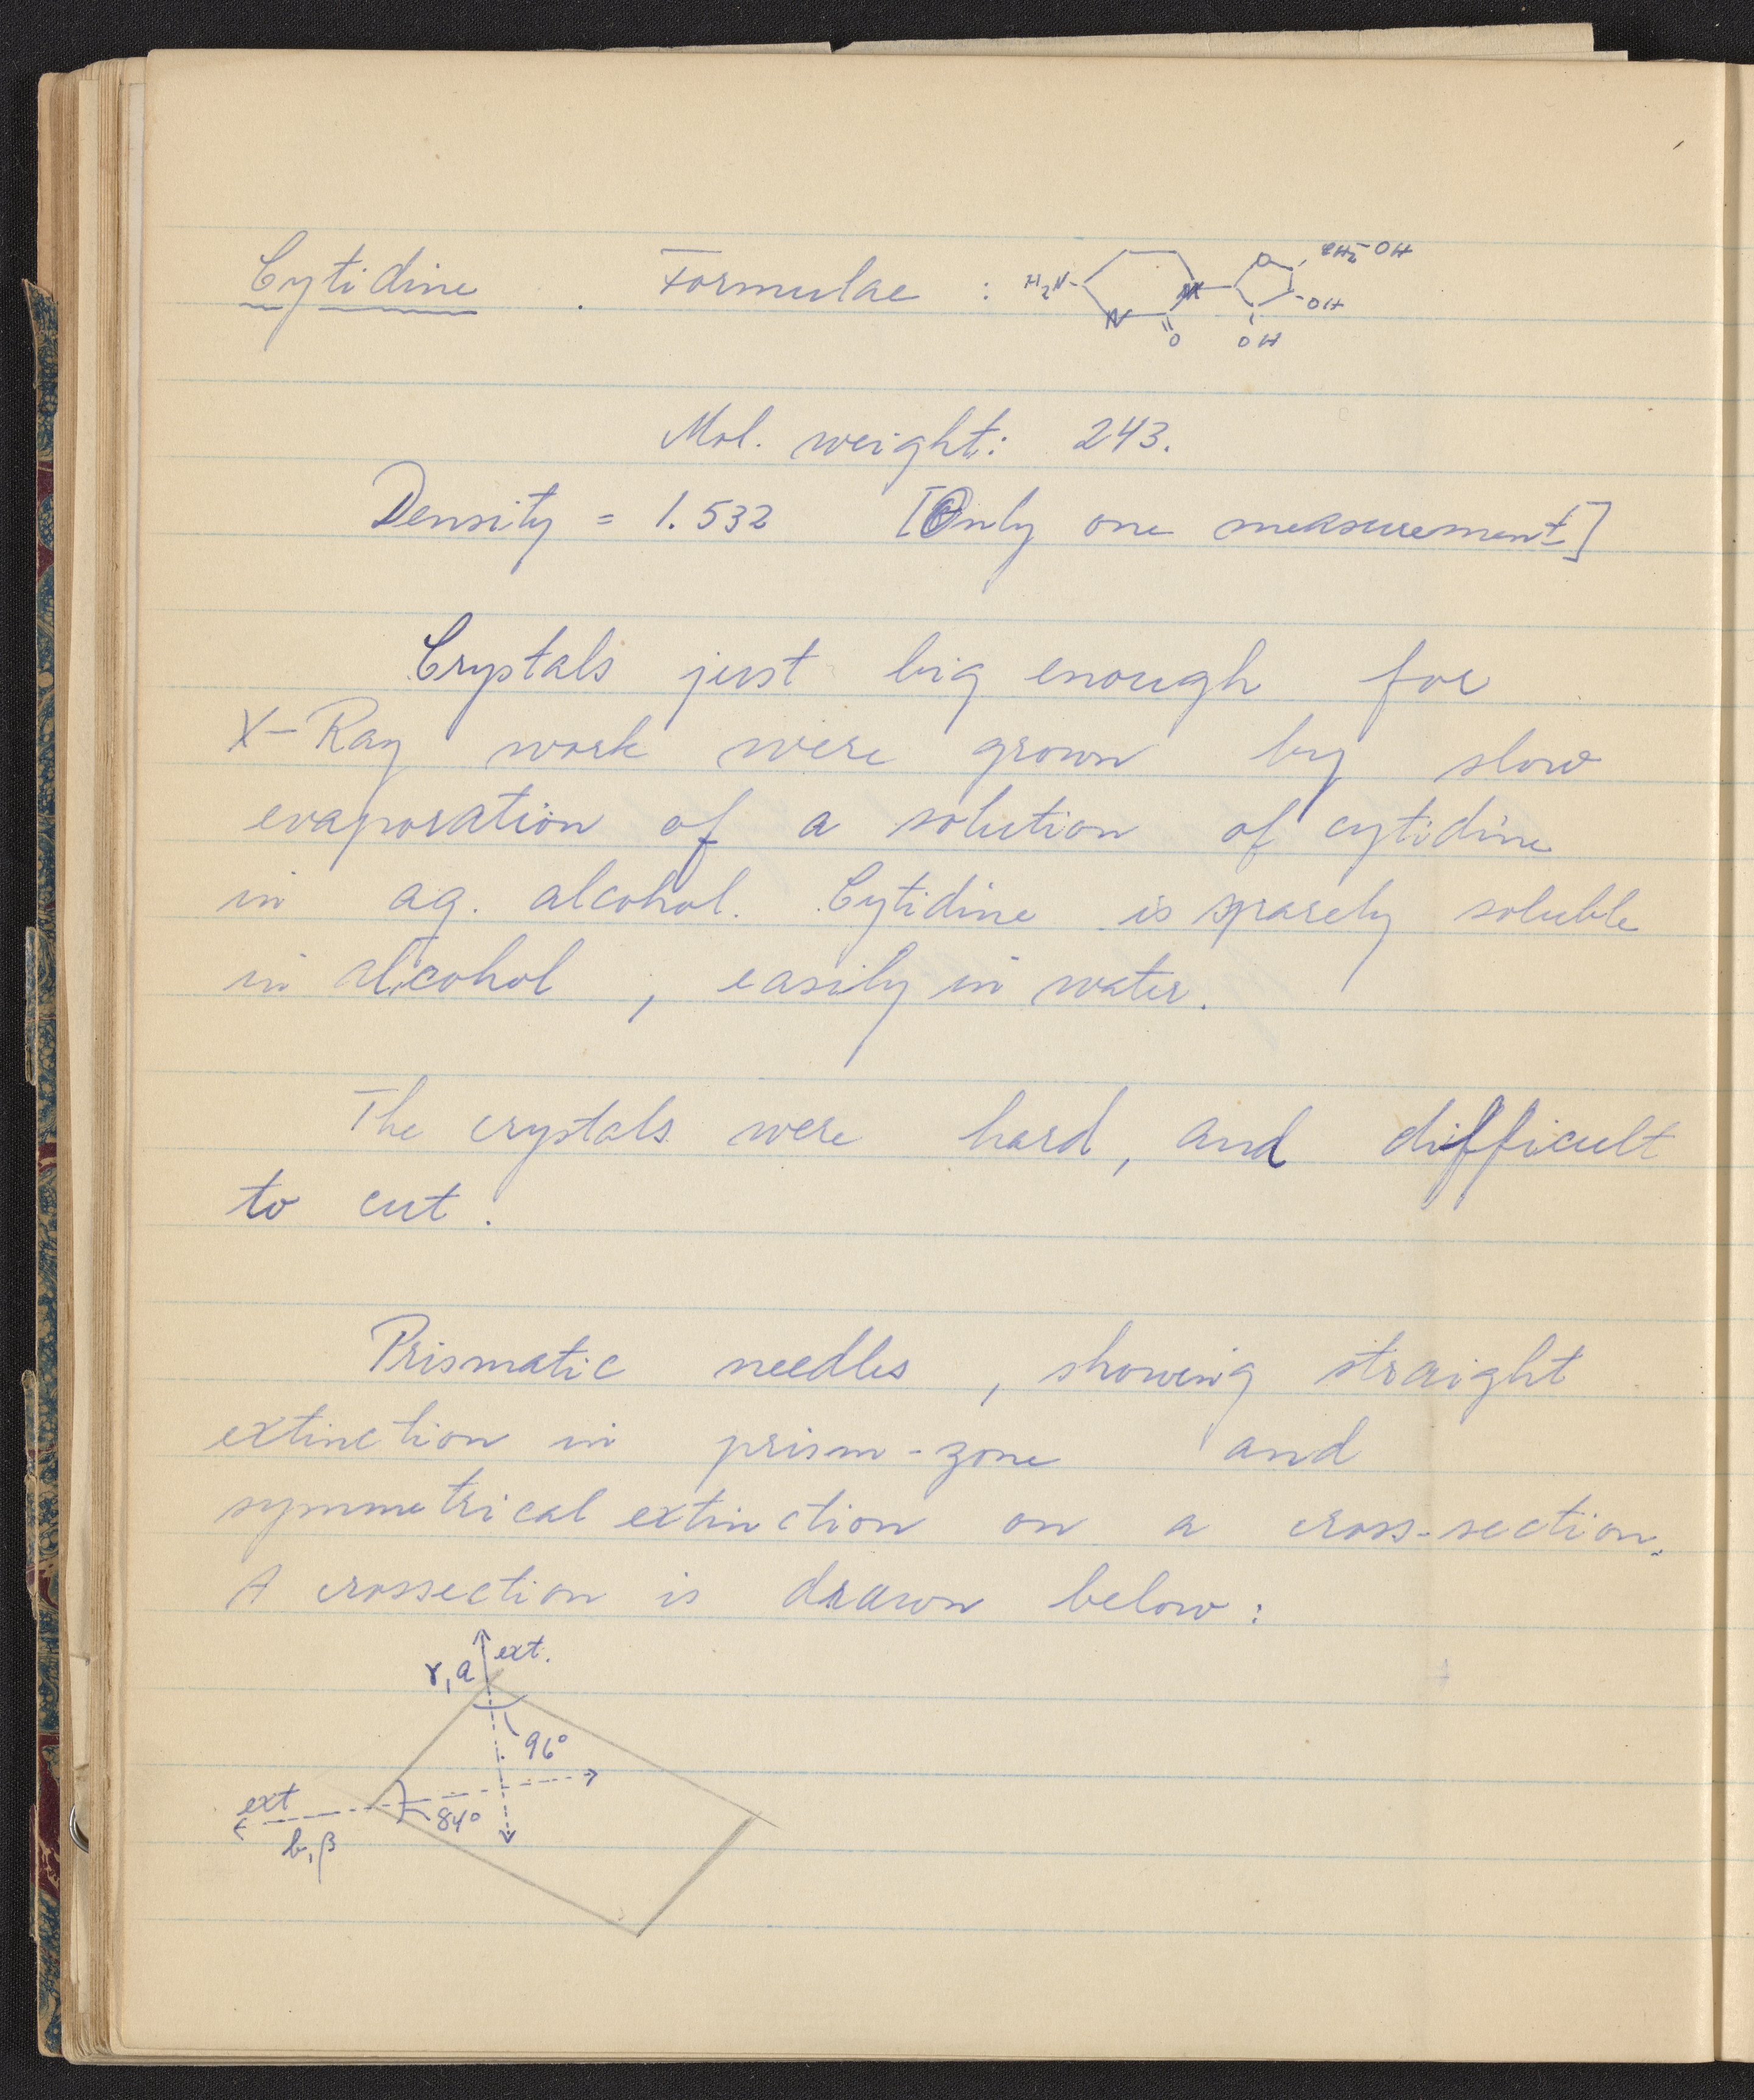 Cytidine . Formulae : H₂N N N O O CH₂-OH OH OH
Mol. weight: 243.
Density = 1.532 [Only one measurement]
Crystals just big enough for
X-Ray work were grown by slow
evaporation of a solution of cytidine
in aq. alcohol. Cytidine is sparely soluble
in alcohol , easily in water.
The crystals were hard, and difficult
to cut.
Prismatic needles , showing straight
extinction in prism-zone and
symmetrical extinction on a cross-section.
A crossection is drawn below:
γ, a ext.
96°
ext
84°
b, β